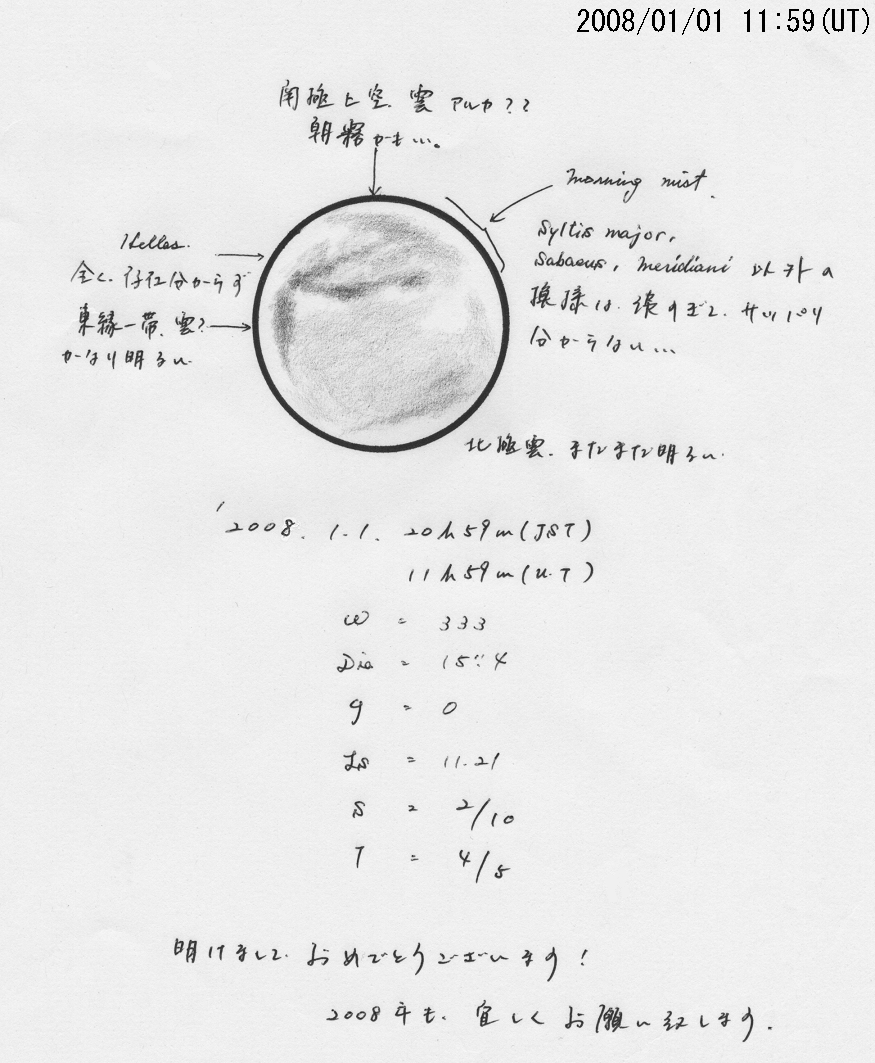 2008/01/01 11:59(UT)
南極上空、雲アルカ??
朝霧かも…。
morning mist.
Hellas.
全く、存在分からず
東縁一帯、雲?
かなり明るい
Syltis major,
Sabaeus, meridiani 以外の
模様は、淡すぎて、サッパリ
分からない…
北極雲、まだまだ明るい
'2008. 1. 1. 20h59m(JST)
11h59m(U.T)
ω = 333
Dia = 15".4
φ = 0
Ls = 11.21
S = 2/10
T = 4/5
明けまして、おめでとうございます!
2008年も、宜しくお願い致します.